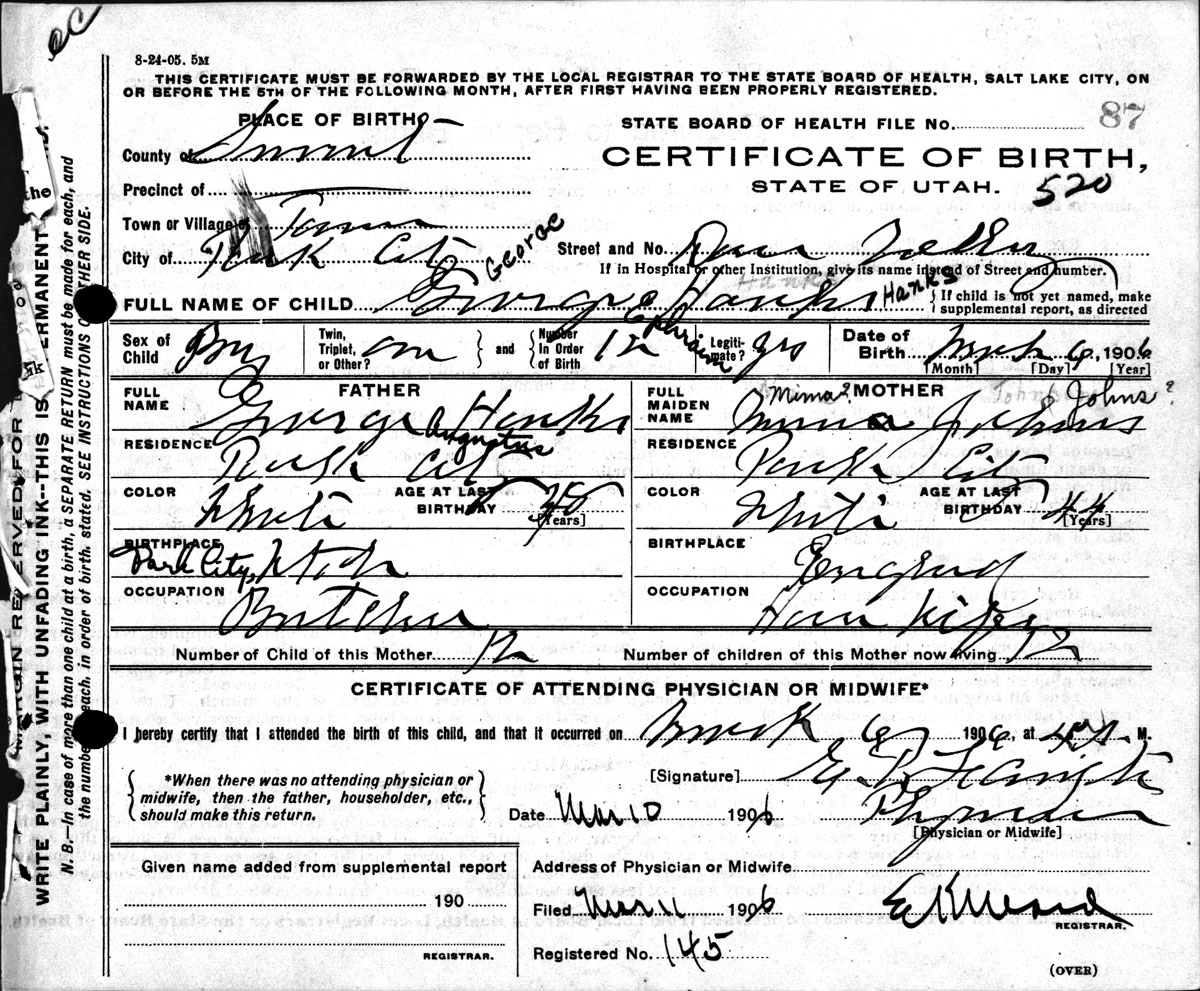 ec
8-24-05. 5M
THIS CERTIFICATE MUST BE FORWARDED BY THE LOCAL REGISTRAR TO THE STATE BOARD OF HEALTH, SALT LAKE CITY, ON
OR BEFORE THE 5TH OF THE FOLLOWING MONTH, AFTER FIRST HAVING BEEN PROPERLY REGISTERED.
PLACE OF BIRTH
STATE BOARD OF HEALTH FILE No. 87
County of Summit
CERTIFICATE OF BIRTH,
STATE OF UTAH. 520
Precinct of
Town or Village of
City of Park City
Street and No.
If in Hospital or other Institution, give its name instead of Street and number.
George Hanks
FULL NAME OF CHILD George Hanks Hanks
Ephraim
If child is not yet named, make
supplemental report, as directed
Sex of Child Boy
Twin, Triplet, or Other? one and Number In Order of Birth 12
Legitimate? yes
Date of Birth March 6, 1906
[Month] [Day] [Year]
FATHER
FULL NAME George Hanks
Augustus
RESIDENCE Park City
COLOR White AGE AT LAST BIRTHDAY 48
[Years]
BIRTHPLACE
Park City, Utah
OCCUPATION Butcher
MOTHER
Mima? Johns?
FULL MAIDEN NAME
RESIDENCE Park City
COLOR White AGE AT LAST BIRTHDAY 44
[Years]
BIRTHPLACE England
OCCUPATION
Number of Child of this Mother 12 Number of children of this Mother now living 12
CERTIFICATE OF ATTENDING PHYSICIAN OR MIDWIFE*
I hereby certify that I attended the birth of this child, and that it occurred on March 6, 1906, at M.
*When there was no attending physician or
midwife, then the father, householder, etc.,
should make this return.
[Signature]
Date Mar 10 1906
[Physician or Midwife]
Given name added from supplemental report
190
REGISTRAR.
Address of Physician or Midwife
Filed Mar. 11 1906
REGISTRAR.
Registered No. 145
(OVER)
MARGIN RESERVED FOR
WRITE PLAINLY, WITH UNFADING INK--THIS IS PERMANENT
N. B.—In case of more than one child at a birth, a SEPARATE RETURN must be made for each, and
the number each, in order of birth, stated. SEE INSTRUCTIONS OTHER SIDE.